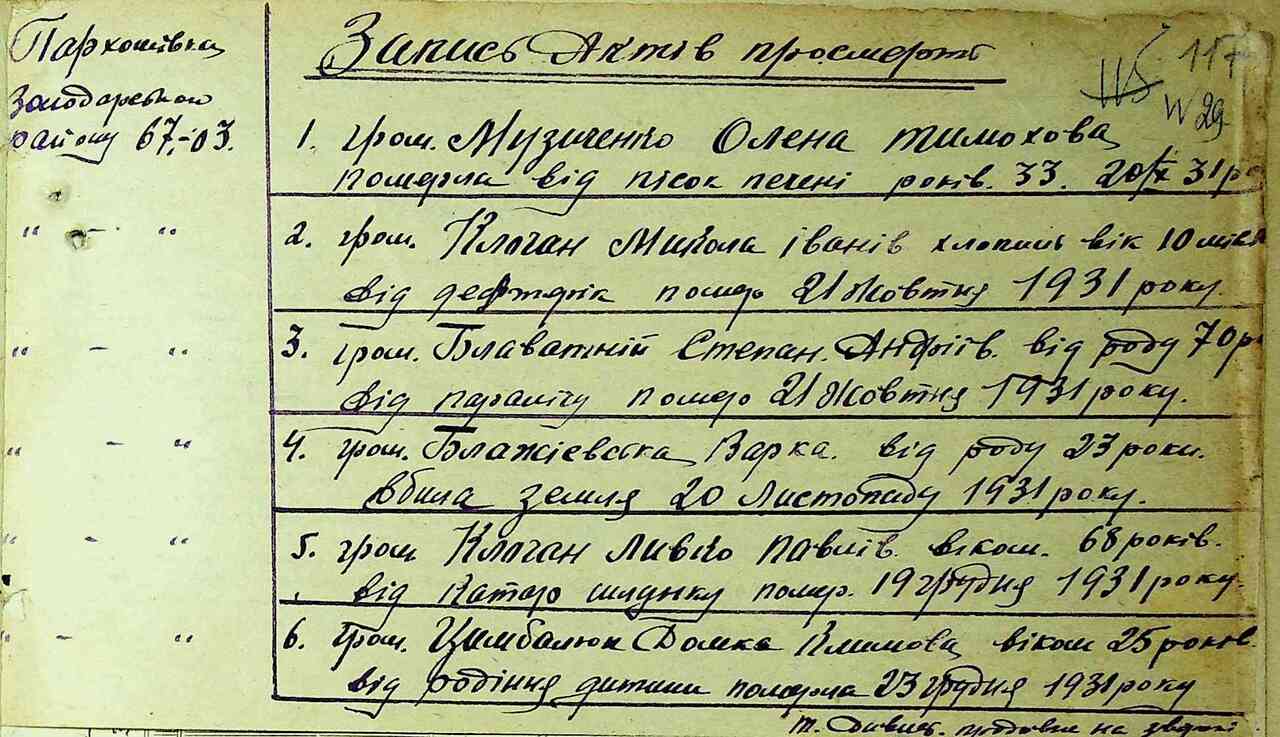 Пархомівка
Володарського
району 67-03.
Запись Актів про смерть
115 117
N 29
1. гром. Музиченко Олена Тимохова
померла від пісок печені років. 33. 20/X 31 ро
" - " 2. гром. Клочан Микола іванів хлопець вік 10 міся
від дефтерік помер 21 Жовтня 1931 року.
" - " 3. гром. Блаватній Степан. Андріїв. від роду 70 р
від паралічу помер 21 Жовтня 1931 року.
" - " 4. гром. Блажієвська Варка. від роду 23 роки.
вбила земля 20 Листопаду 1931 року.
" - " 5. гром Клочан Левко Павлів. віком. 68 років.
від Катар шлунку помер. 19 грудня 1931 року.
" - " 6. гром. Цимбалюк Домка Климова, віком 25 років.
від родіння дитини померла 23 грудня 1931 року
на звороті